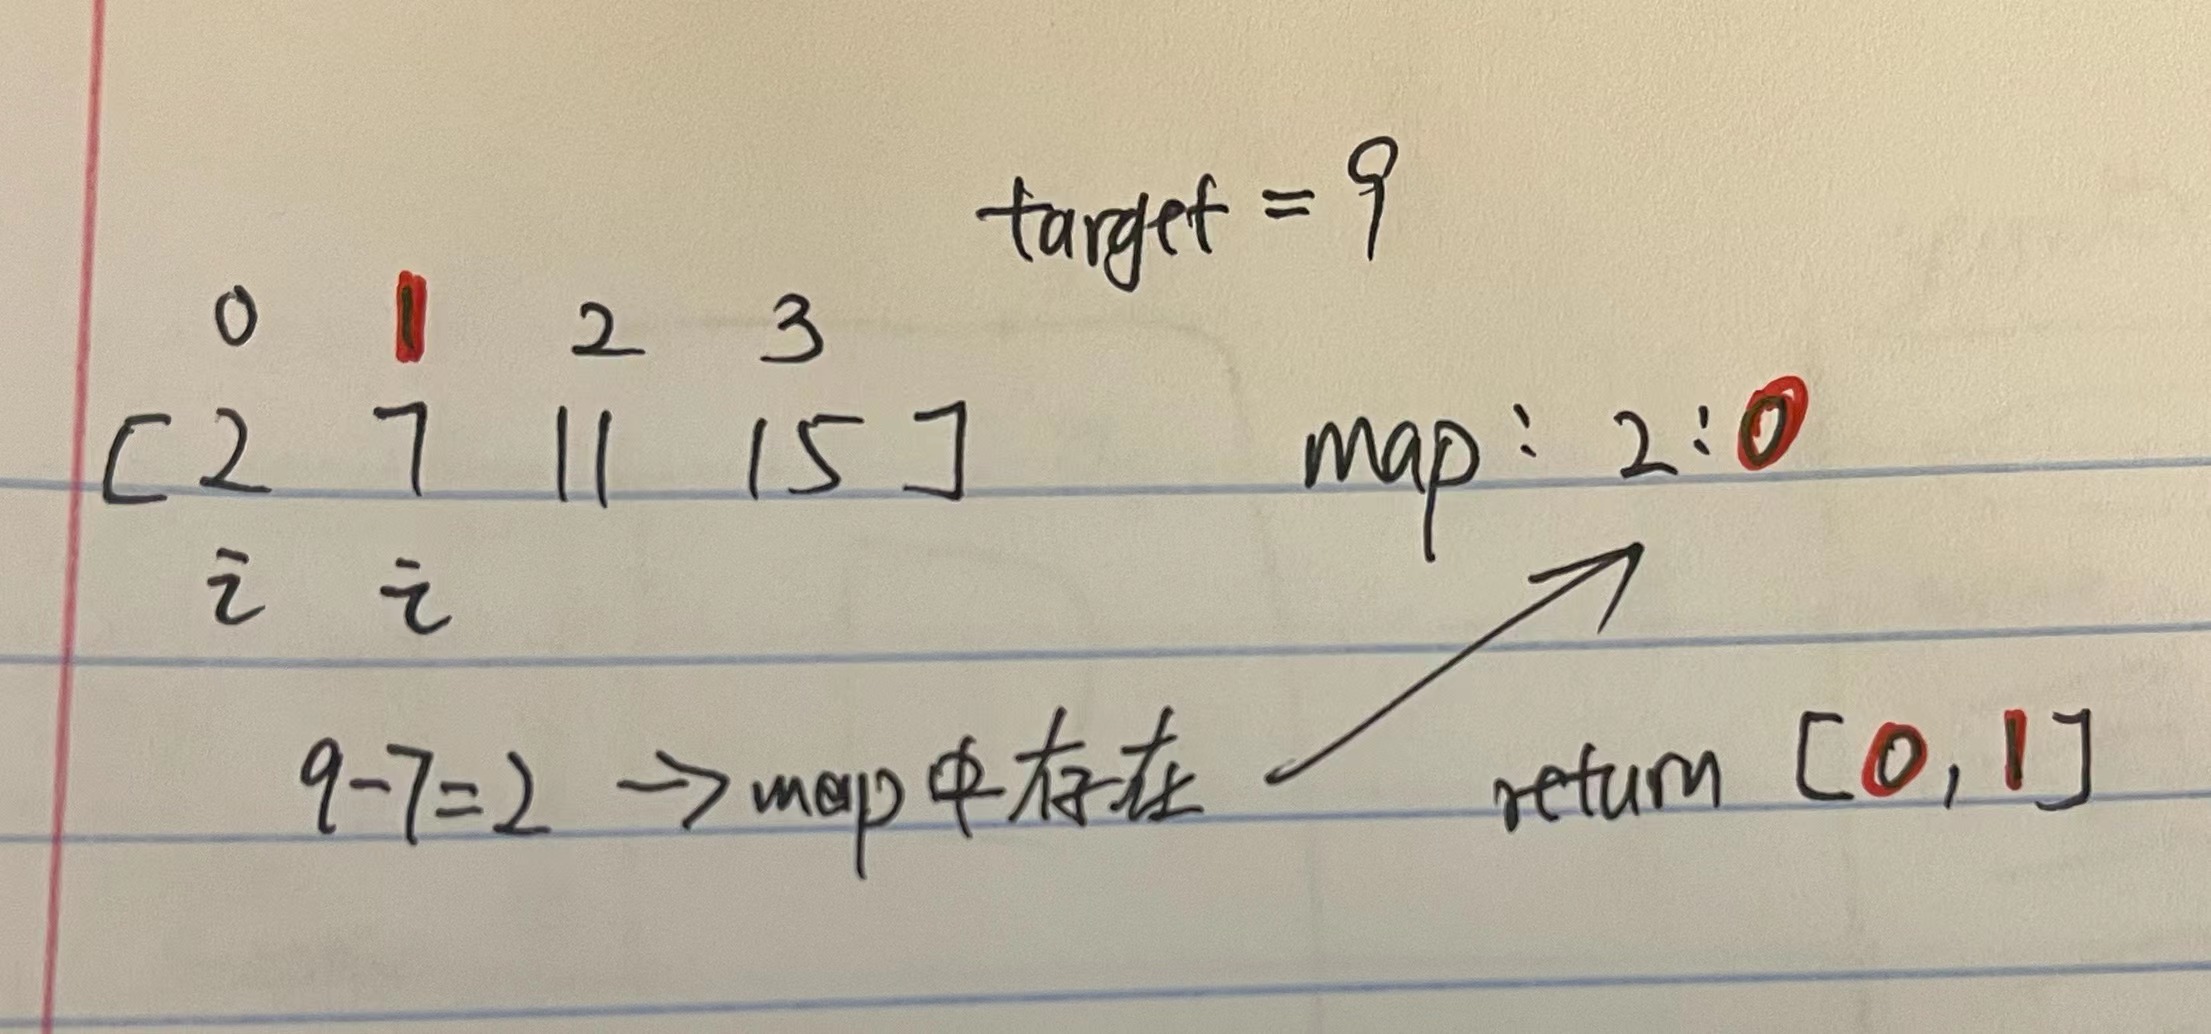 target = 9
0 1 2 3
[ 2 7 11 15 ] map: 2:0
i i
9-7=2 → map中存在 return [0, 1]